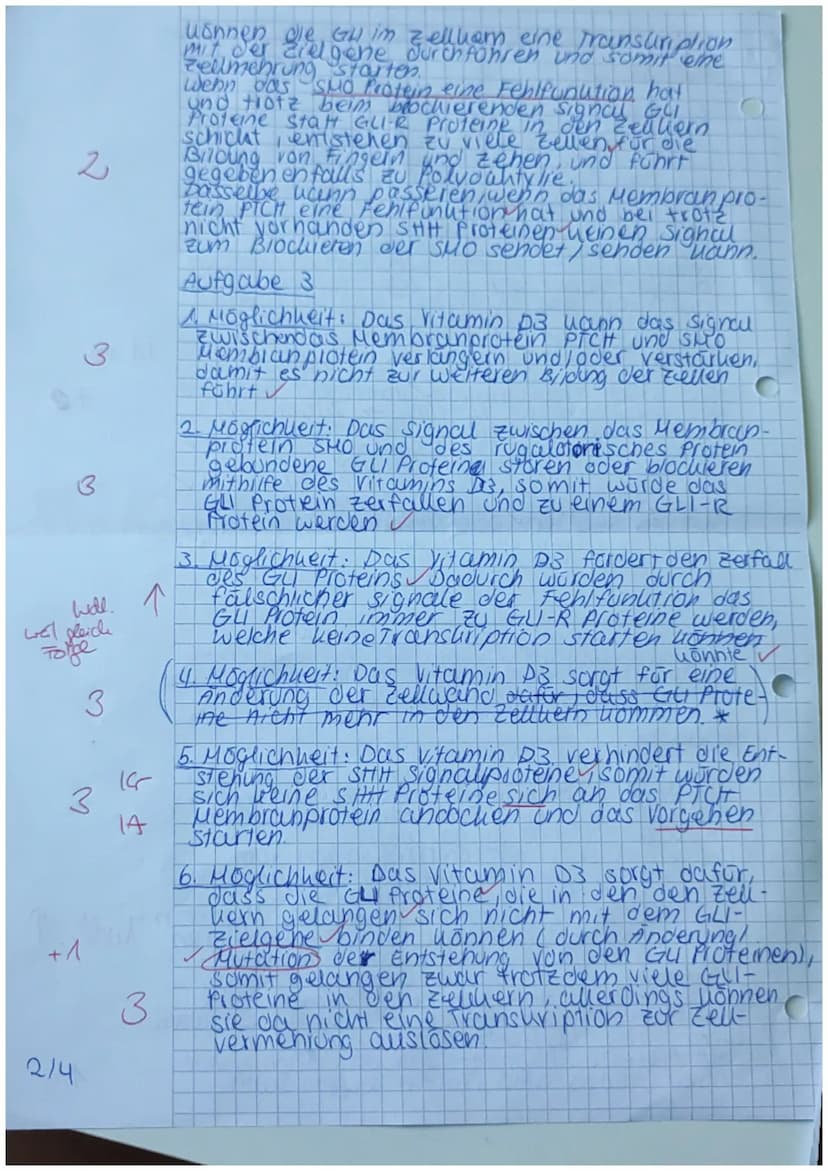 können die Gli im Zellkern eine Transkription
mit der Zielgene durchführen und somit eine
Zellmehrung starten.
Wenn das SMO Protein eine Fehlfunktion hat
und trotz beim blockierenden Signal Gli
Proteine statt GLI-R Proteine in den Zellkern
schickt, entstehen zu viele Zellen für die
Bildung von Fingern und Zehen, und führt
gegebenenfalls zu Polydaktylie.
2
Dasselbe kann passieren, wenn das Membranpro-
tein PTCH eine Fehlfunktion hat und bei trotz
nicht vorhanden SHH Proteinen keinen Signal
zum Blockieren der SMO sendet/senden kann.
Aufgabe 3
1. Möglichkeit: Das Vitamin D3 kann das Signal
zwischen das Membranprotein PTCH und SMO
3
Membranprotein verlängern und/oder verstärken,
damit es nicht zur weiteren Bildung der Zellen
führt
2. Möglichkeit: Das Signal zwischen das Membran-
protein SMO und des rugalatorisches Protein
gebundene GLI Proteine stören oder blockieren
3
mithilfe des Vitamins D3, somit würde das
GLI Protein zerfallen und zu einem GLI-R
Protein werden
3. Möglichkeit: Das Vitamin D3 fördert den Zerfall
des Gli Proteins. Dadurch würden durch
fälschlicher Signale der Fehlfunktion das
Gli Protein immer zu Gli-R Proteine werden,
welche keine Transkription starten können
könnte
gleich
Folge
4. Möglichkeit: Das Vitamin D3 sorgt für eine
Änderung der Zellwand dafür, dass Gli Prote-
3
ine nicht mehr in den Zellkern kommen. *
5. Möglichkeit: Das Vitamin D3 verhindert die Ent-
stehung der SHH Signalproteine, somit würden
1Gr
3
sich keine SHH Proteine sich an das PTCH
1A
Membranprotein andocken und das Vorgehen
starten.
6. Möglichkeit: Das Vitamin D3 sorgt dafür,
dass die Gli Proteine, die in den den Zell-
kern gelangen sich nicht mit dem GLI-
Zielgene binden können (durch Änderung/
+1
Mutation der Entstehung von den Gli Proteinen),
somit gelangen zwar trotzdem viele Gli-
3
Proteine in den Zellkern, allerdings können
sie da nicht eine Transkription zur Zell-
vermehrung auslösen.
2/4